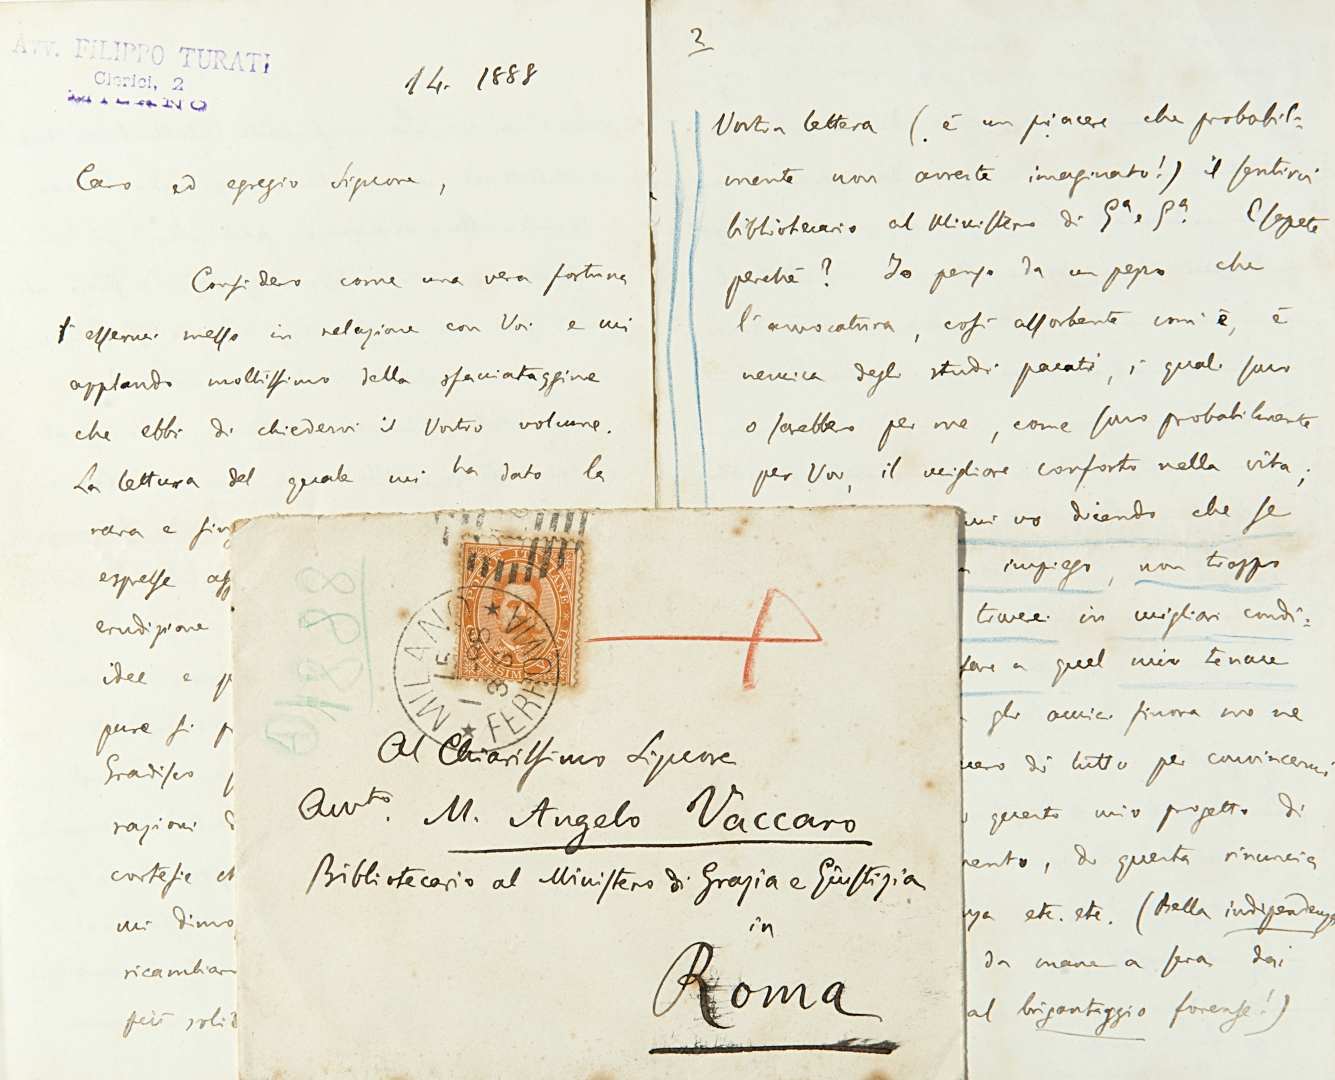 Avv. FILIPPO TURATI
Clerici, 2
MILANO
14. 1888
Caro ed egregio Signore,
Considero come una vera fortuna
l'essermi messo in relazione con Voi e mi
applaudo moltissimo della sfacciataggine
che ebbi di chiedervi il Vostro volume.
La lettura del quale mi ha dato la
rara e
espresse
erudizione
idee e
pure si
Gradisco
ragioni
cortesie
mi dimo
ricambiar
più solid
2
Vostra lettera (è un piacere che probabil-
mente non avreste imaginato!) il sentirvi
bibliotecario al Ministero di Gª e Gª. E sapete
perchè? Io penso da un pezzo che
l'avvocatura, così assorbente com'è, è
nemica degli studi pacati, i quali sono
o sarebbero per me, come sono probabilmente
per Voi, il migliore conforto nella vita;
mi vo dicendo che se
impiego, non troppo
in migliori condi-
a quel mio tenace
gli amici finora no ne
di tutto per convincermi
questo mio progetto di
mento, di questa rinuncia
etc. etc. (Bella indipendenza
da mane a sera dai
al brigantaggio forense!)
1888
MILANO
FERROVIA
15
88
Al Chiarissimo Signore
Avvto. M. Angelo Vaccaro
Bibliotecario al Ministero di Grazia e Giustizia
in
Roma